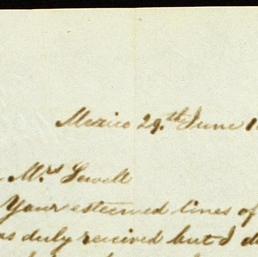 Mexico 29.th June 1
Mrs Sewell
Your esteemed lines of
as duly received but I d